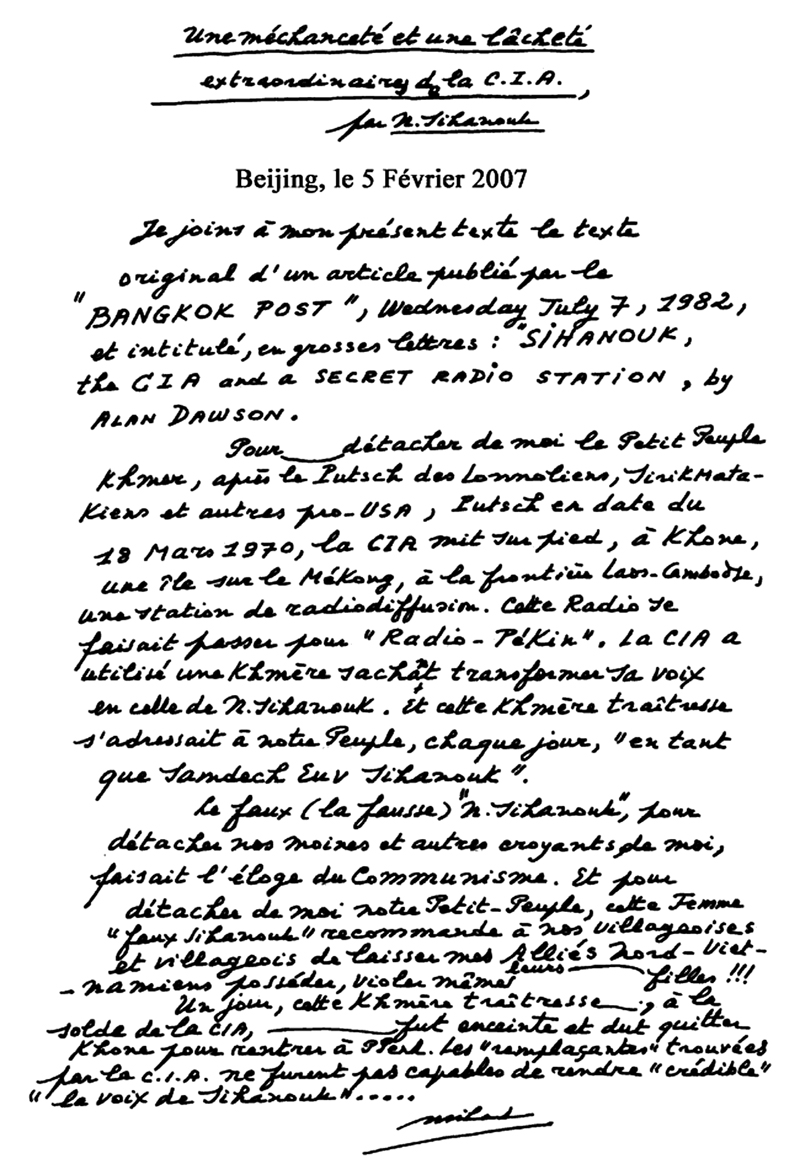 Une méchanceté et une lâcheté
extraordinaires de la C.I.A.,
par N. Sihanouk
Beijing, le 5 Février 2007
Je joins à mon présent texte le texte
original d'un article publié par le
"BANGKOK POST", Wednesday July 7, 1982,
et intitulé, en grosses lettres : "SiHANOUK,
the CIA and a SECRET RADiO STATiON, by
ALAN DAWSON.
Pour détacher de moi le Petit Peuple
Khmer, après le Putsch des Lonnoliens, SirikMata-
Kiens et autres pro-USA, Putsch en date du
18 Mars 1970, la CIA mit sur pied, à Khone,
une île sur le Mékong, à la frontière Laos-Cambodge,
une station de radiodiffusion. Cette Radio se
faisait passer pour "Radio-Pékin". La CIA a
utilisé une Khmère sachant transformer sa voix
en celle de N. Sihanouk. Et cette Khmère traîtresse
s'adressait à notre Peuple, chaque jour, "en tant
que Samdech Euv Sihanouk".
Le faux (la fausse) "N. Sihanouk", pour
détacher nos moines et autres croyants de moi,
faisait l'éloge du Communisme. Et pour
détacher de moi notre Petit-Peuple, cette Femme
"faux Sihanouk" recommande à nos villageoises
et villageois de laisser mes Alliés Nord-Viet-
-namiens posséder, violer mêmes leurs filles !!!
Un jour, cette Khmère traîtresse, à la
solde de la CIA, fut enceinte et dut quitter
Khone pour rentrer à PPenh. Les "remplaçantes" trouvées
par la C.I.A. ne furent pas capables de rendre "crédible"
"la voix de Sihanouk".....